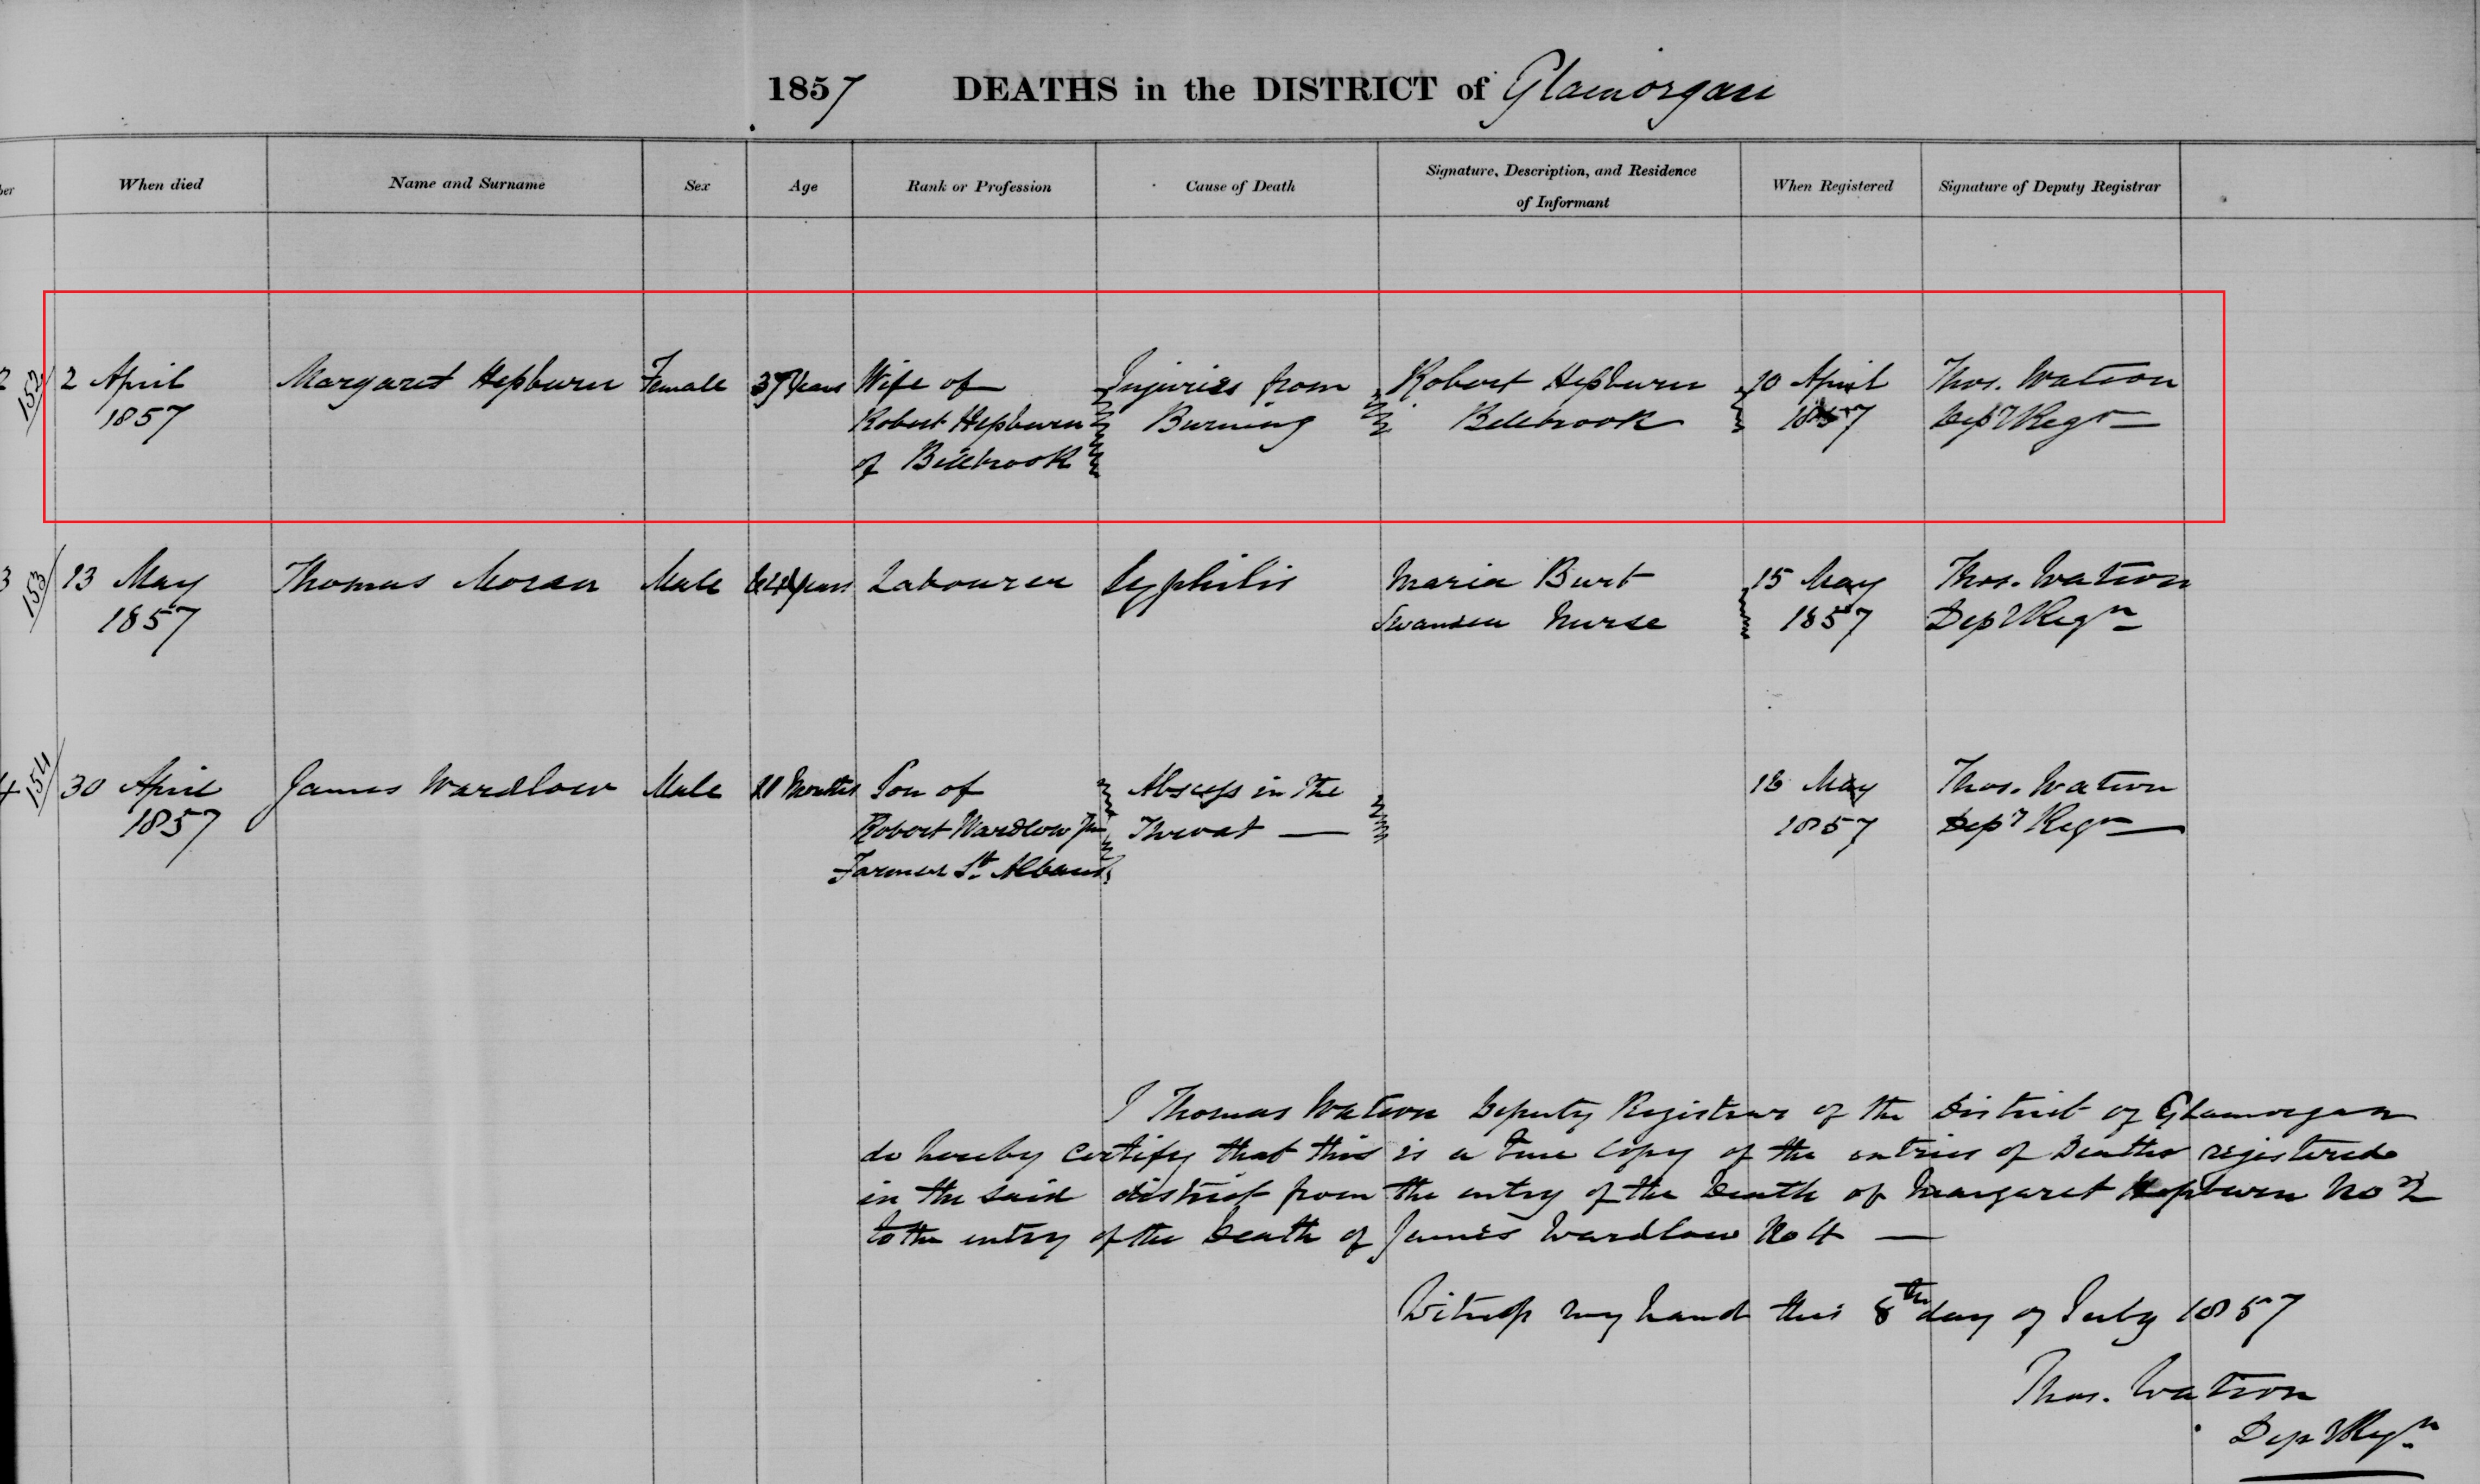 1857 DEATHS in the DISTRICT of Glamorgan
When died Name and Surname Sex Age Rank or Profession Cause of Death Signature, Description, and Residence of Informant When Registered Signature of Deputy Registrar
2 152 2 April Margaret Hepburn Female 37 Years Wife of Injuries from Robert Hepburn 10 April Thos. Watson
1857 Robert Hepburn Burning Bellbrook 1857 Depy Regr
of Bellbrook
3 153 13 May Thomas Moran Male Years Labourer Syphilis Maria Burt 15 May Thos. Watson
1857 Swansea Nurse 1857 Depy Regr
4 154 30 April James Wardlow Male Months Son of Abscess in the 18 May Thos. Watson
1857 Robert Wardlow Jun Throat 1857 Depy Regr
Farmer St. Albans
I Thomas Watson Deputy Registrar of the District of Glamorgan
do hereby certify that this is a true copy of the entries of Deaths registered
in the said district from the entry of the Death of Margaret Hepburn No 2
to the entry of the Death of James Wardlow No 4
Witness my hand this 8th day of July 1857
Thos. Watson
Depy Regr